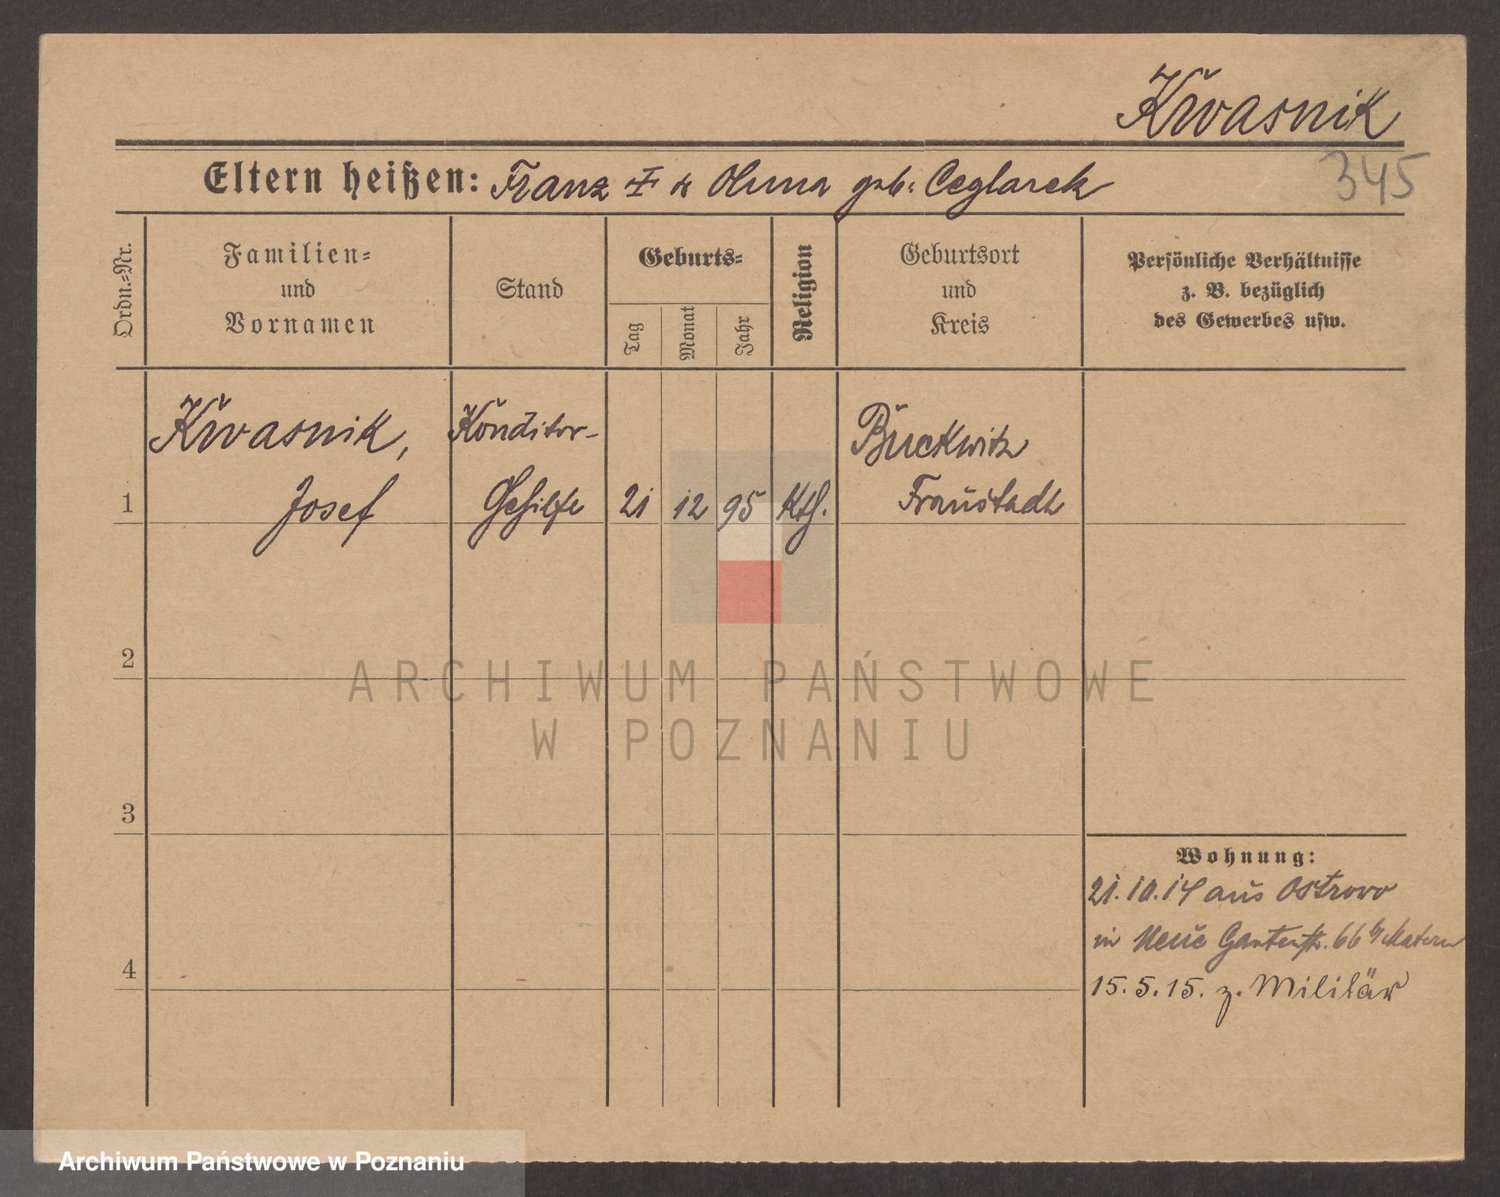 Kwasnik
345
Eltern heißen: Franz geb. Ceglarek
Ordn.-Nr.
Familien-
und
Vornamen
Stand
Geburts-
Tag
Monat
Jahr
Religion
Geburtsort
und
Kreis
Persönliche Verhältnisse
z. B. bezüglich
des Gewerbes usw.
Kwasnik,
Konditor-
Buckwitz
1
Josef
Gehilfe
21
12
95
Kth.
Fraustadt
2
3
4
Wohnung:
21.10.14 aus Ostrowo
in Neue Gartenstr. 66
15.5.15. z. Militär
ARCHIWUM PAŃSTWOWE
W POZNANIU
Archiwum Państwowe w Poznaniu